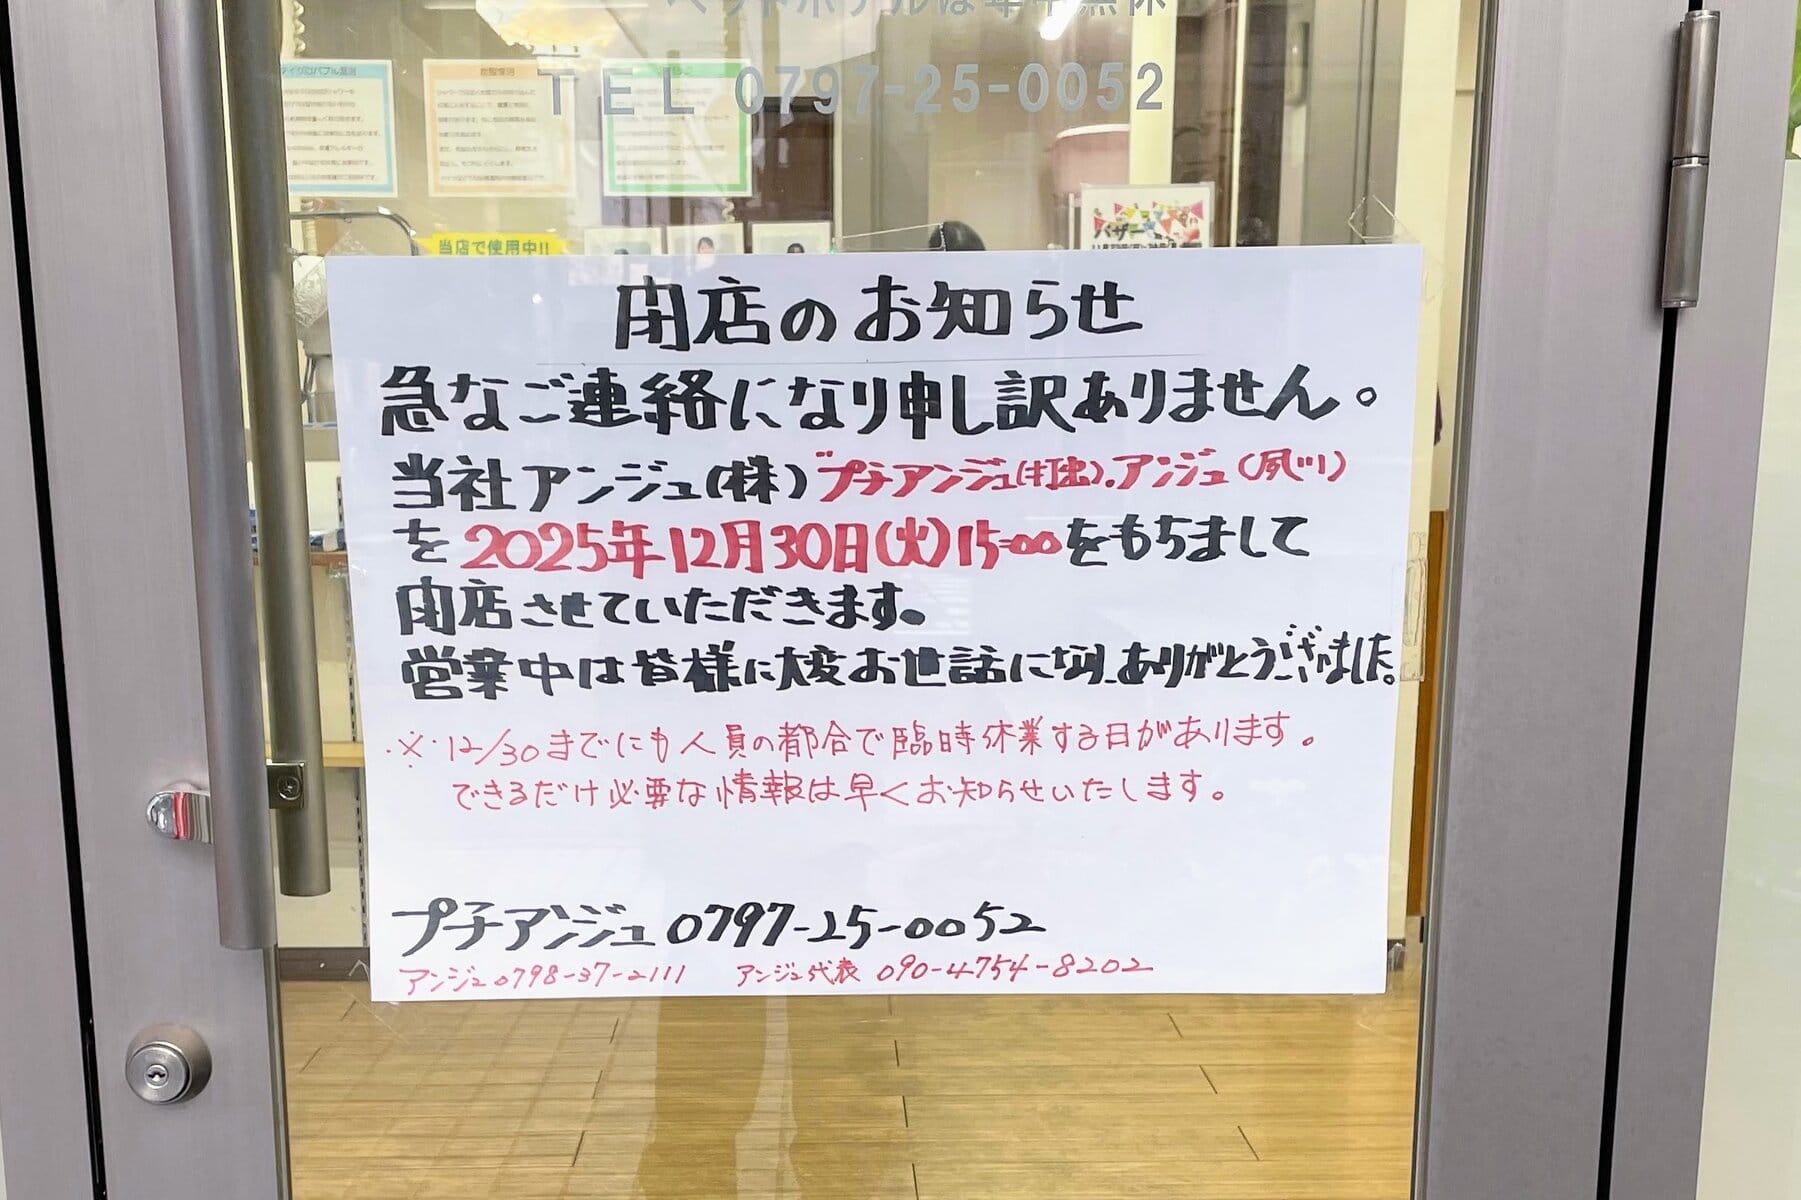 ペットホテルは年中無休
TEL 0797-25-0052
当店で使用中!!
バザー
閉店のお知らせ
急なご連絡になり申し訳ありません。
当社アンジュ(株)プチアンジュ(打出).アンジュ(夙川)
を2025年12月30日(火)15:00をもちまして
閉店させていただきます。
営業中は皆様に大変お世話になり、ありがとうございました。
※12/30までにも人員の都合で臨時休業する日があります。
できるだけ必要な情報は早くお知らせいたします。
プチアンジュ0797-25-0052
アンジュ0798-37-2111 アンジュ代表 090-4754-8202